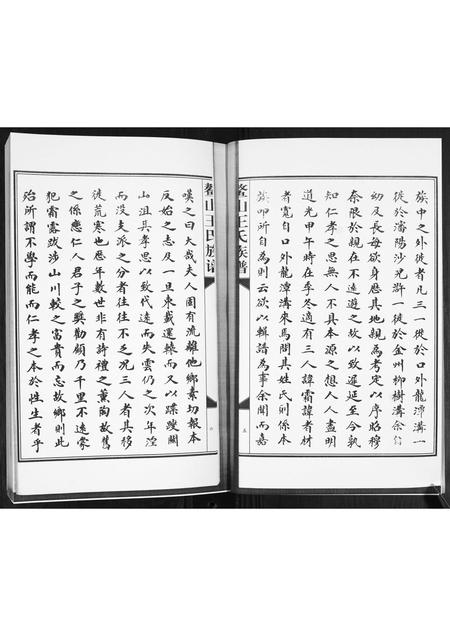 族中之外徙者凡三一徙於口外龍潭溝一
徙於瀋陽沙光滸一徙於金州柳樹溝余
幼及長每欲身歷其地親為考定以序昭穆
奈限於親在不遠遊之故以致遲延至今孰
知仁孝之思無人不具本源之想人人盡明
道光甲午時在季冬適有三人諱霜諱者材
者寬自口外龍潭溝來馬問其姓氏則係本
族叩所自為則云欲以輯譜為事余聞而嘉
鰲山王氏族譜
五
鰲山王氏族譜
六
嘆之曰大哉夫人固有流離他鄉素切報本
反始之志及一旦束載運轅而又以蹀躞關
山沮其孝思以致代遠而失雲仍之次年湮
而没支派之分者往往不乏况三人者其移
徙荒寒也歷年數世非有詩禮之薰陶故舊
之係戀仁人君子之獎勸顧乃千里不遠蒙
犯霜露跋涉山川較之富貴而忘故鄉則此
殆所謂不學而能而仁孝之本於性生者乎